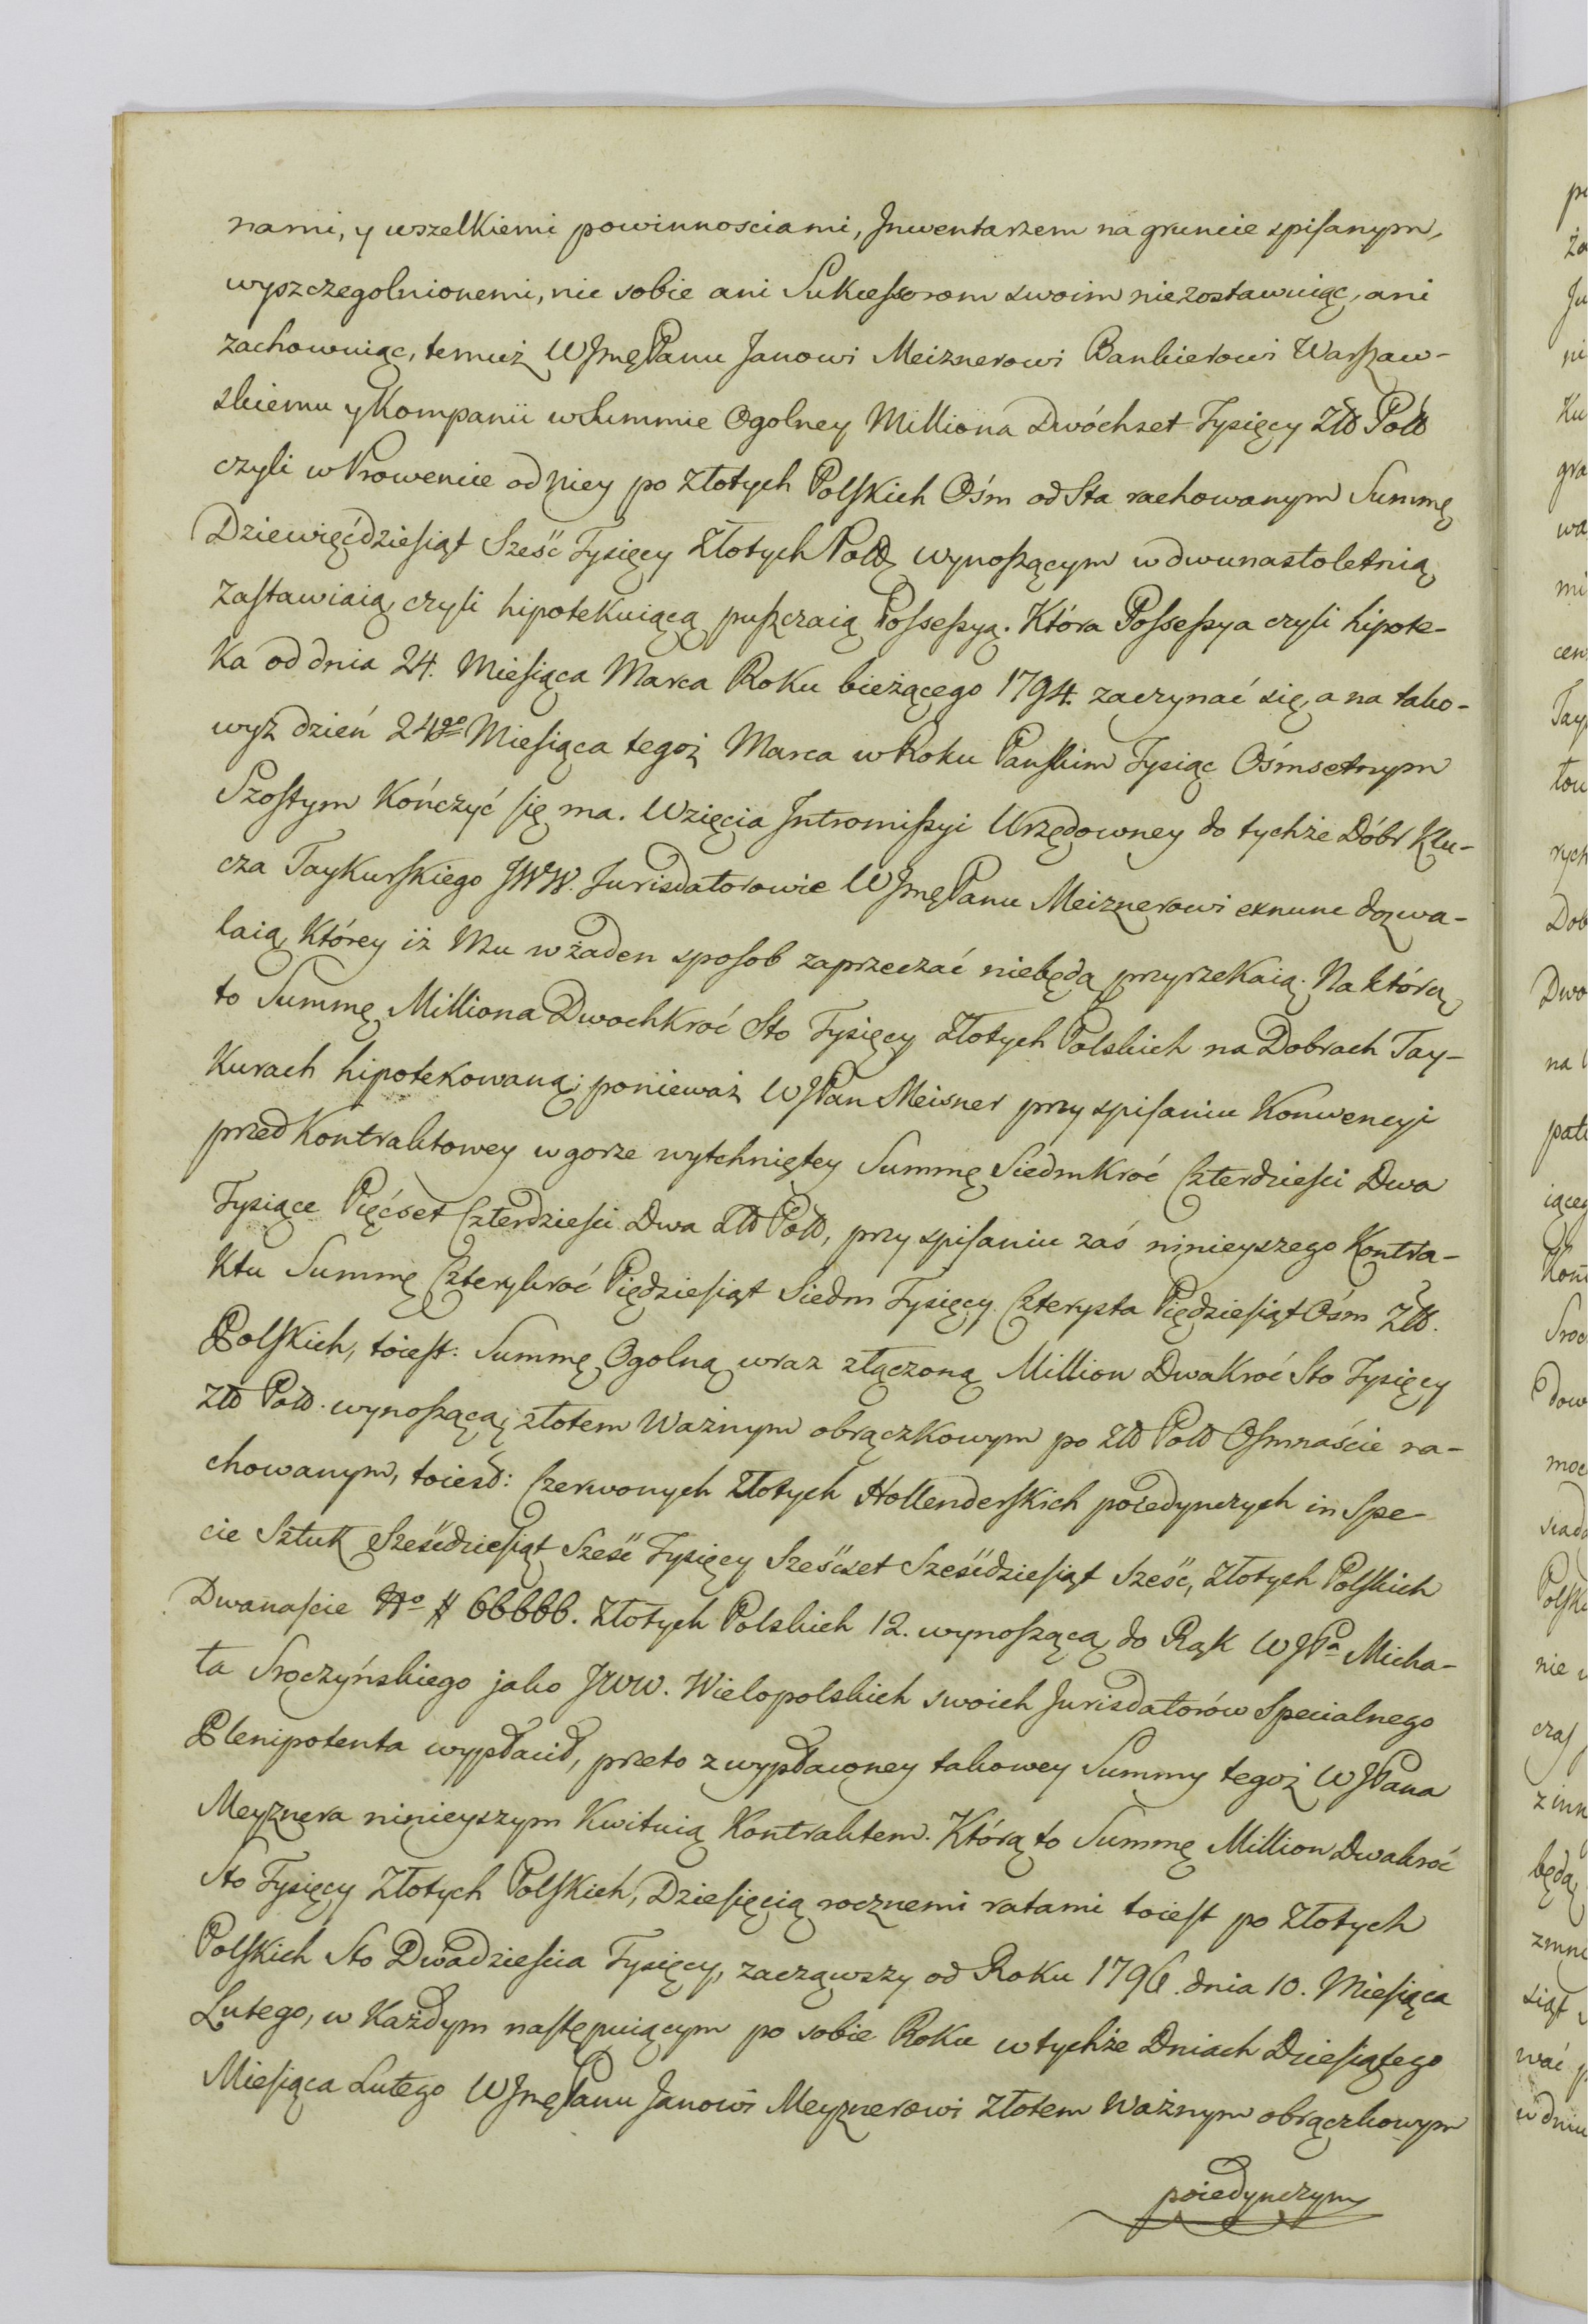 nami, y wszelkiemi powinnosciami, Jnwentarzem na gruncie spisanym,
wyszczegolnionemi, nic sobie ani Sukcessorom swoim niezostawuiąc, ani
zachowuiąc, temuż WJmę Panu Janowi Meiznerowi Bankierowi Warszaw-
skiemu y Kompanii w Summie Ogolney Milliona Dwóchset Tysięcy Złł Poll
czyli w Prowencie od niey po Złotych Polskich Ośm od Sta rachowanym Summę
Dziewięćdziesiąt Sześć Tysięcy Złotych Poll wynoszącym w dwunastoletnią
Zastawiaią czyli hipotekuiącą puszczaią Possessyą. Która Possessya czyli hipote-
ka od dnia 24. Miesiąca Marca Roku bieżącego 1794. zaczynać się, a na tako-
wyż dzień 24go Miesiąca tegoż Marca w Roku Panskim Tysiąc Ośmsetnym
Szostym Kończyć się ma. Wzięcia Jntromissyi Urzędowney do tychże Dóbr Klu-
cza Taykurskiego JWW. Jurisdatorowie WJmę Panu Meiznerowi exnunc dozwa-
laią, Którey iż Mu w żaden sposob zaprzeczać niebędą przyrzekaią. Na którą
to Summę Milliona Dwochkroć Sto Tysięcy Złotych Polskich na Dobrach Tay-
kurach hipotekowaną; ponieważ WJPan Meisner przy spisaniu Konwencyi
przed Kontraktowey w gorze wytchniętey Summę Siedmkroć Czterdzieści Dwa
Tysiące Pięćset Czterdzieści Dwa Złł Poll, przy spisaniu zaś ninieyszego Kontra-
ktu Summę Czterykroć Pięćdziesiąt Siedm Tysięcy Czterysta Pięćdziesiąt Ośm Złł.
Polskich, toiest: Summę Ogolną wraz złączoną Million Dwakroć Sto Tysięcy
Złł Poll. wynoszącą; złotem Ważnym obrączkowym po Złł Poll Osmnaście ra-
chowanym, toiest: Czerwonych Złotych Hollenderskich poiedynczych in Spe-
cie Sztuk Sześćdziesiąt Sześć Tysięcy Sześćset Sześćdziesiąt Sześć, Złotych Polskich
Dwanaście No # 66666. Złotych Polskich 12. wynoszącą do Rąk WJPa Micha-
ła Sroczyńskiego jako JWW. Wielopolskich swoich Jurisdatorów Specialnego
Plenipotenta wypłacił, przeto z wypłaconey takowey Summy tegoż WJPana
Meyznera ninieyszym Kwituią Kontraktem. Którą to Summę Million Dwakroć
Sto Tysięcy Złotych Polskich, Dziesięcią rocznemi ratami toiest po Złotych
Polskich Sto Dwadzieścia Tysięcy, zacząwszy od Roku 1796. dnia 10. Miesiąca
Lutego, w Każdym następuiącym po sobie Roku w tychże Dniach Dziesiątego
Miesiąca Lutego WJmę Panu Janowi Meyznerowi Złotem Ważnym obrączkowym
poiedynczym